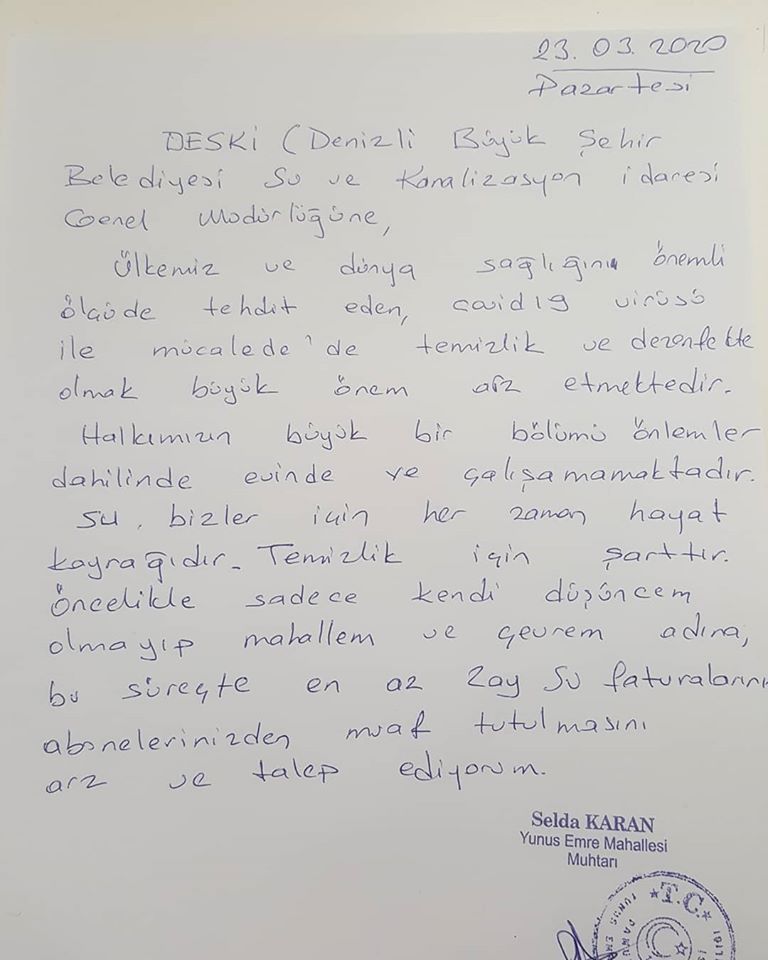 23.03.2020
Pazartesi
DESKİ (Denizli Büyük Şehir
Belediyesi Su ve Kanalizasyon idaresi
Genel Müdürlüğüne,
Ülkemiz ve dünya sağlığını önemli
ölçüde tehdit eden, covid19 virüsü
ile mücalede'de temizlik ve dezenfekte
olmak büyük önem arz etmektedir.
Halkımızın büyük bir bölümü önlemler
dahilinde evinde ve çalışamamaktadır.
Su, bizler için her zaman hayat
kaynağıdır. Temizlik için şarttır.
öncelikle sadece kendi düşüncem
olmayıp mahallem ve çevrem adına,
bu süreçte en az 2ay Su faturalarının
abonelerinizden muaf tutulmasını
arz ve talep ediyorum.
Selda KARAN
Yunus Emre Mahallesi
Muhtarı
T.C.